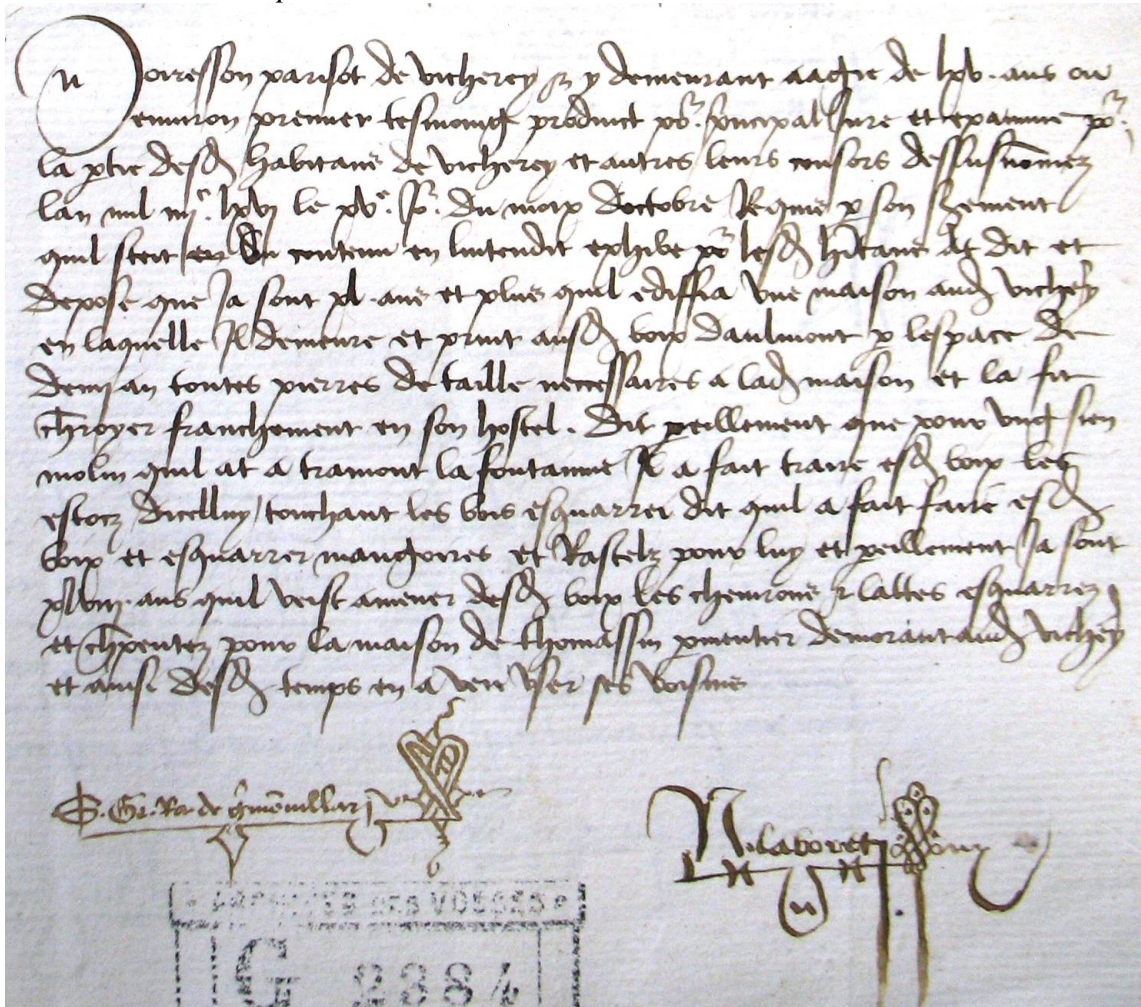 Doiresson parisot de vicherey et y demeurant aagie de lxv. ans ou
environ premier tesmoing product po.r principal Jure et examine po.r
la ptie desd habitans de vicherey et autres leurs consors dessusnomez
lan mil iiii c. lxvi le xv e. Jo.r du moix doctobre Requis p son serement
quil sceit du contenu en lintendit exhibe po.r lesd hitans dit et
depose que Ja sont xl. ans et plus quil ediffia une maison aud vichey
en laquelle Il demeure et print ausd boix daulmont p lespace de
demi an toutes pierres de taille neccessaires a lad maison et la fit
chroyer franchement en son hostel. Dit peillement que pour ung sien
molin quil at a tramont la fontainne Il a fait traire esd boix les
estocz dicelluy / touchant les bois esquarrei dit quil a fait faire esd
boix et esquarrer mangoires et Rastelz pour luy et peillement Ja sont
xlviii. ans quil veist amener desd boix les chemrons et lattes esquarrez
et chpentez pour la maison de thomassin pmentier demorant aud vichey
et ainsi desd temps en a veu user ses voisins
ARCHIVES DES VOSGES
G 2884